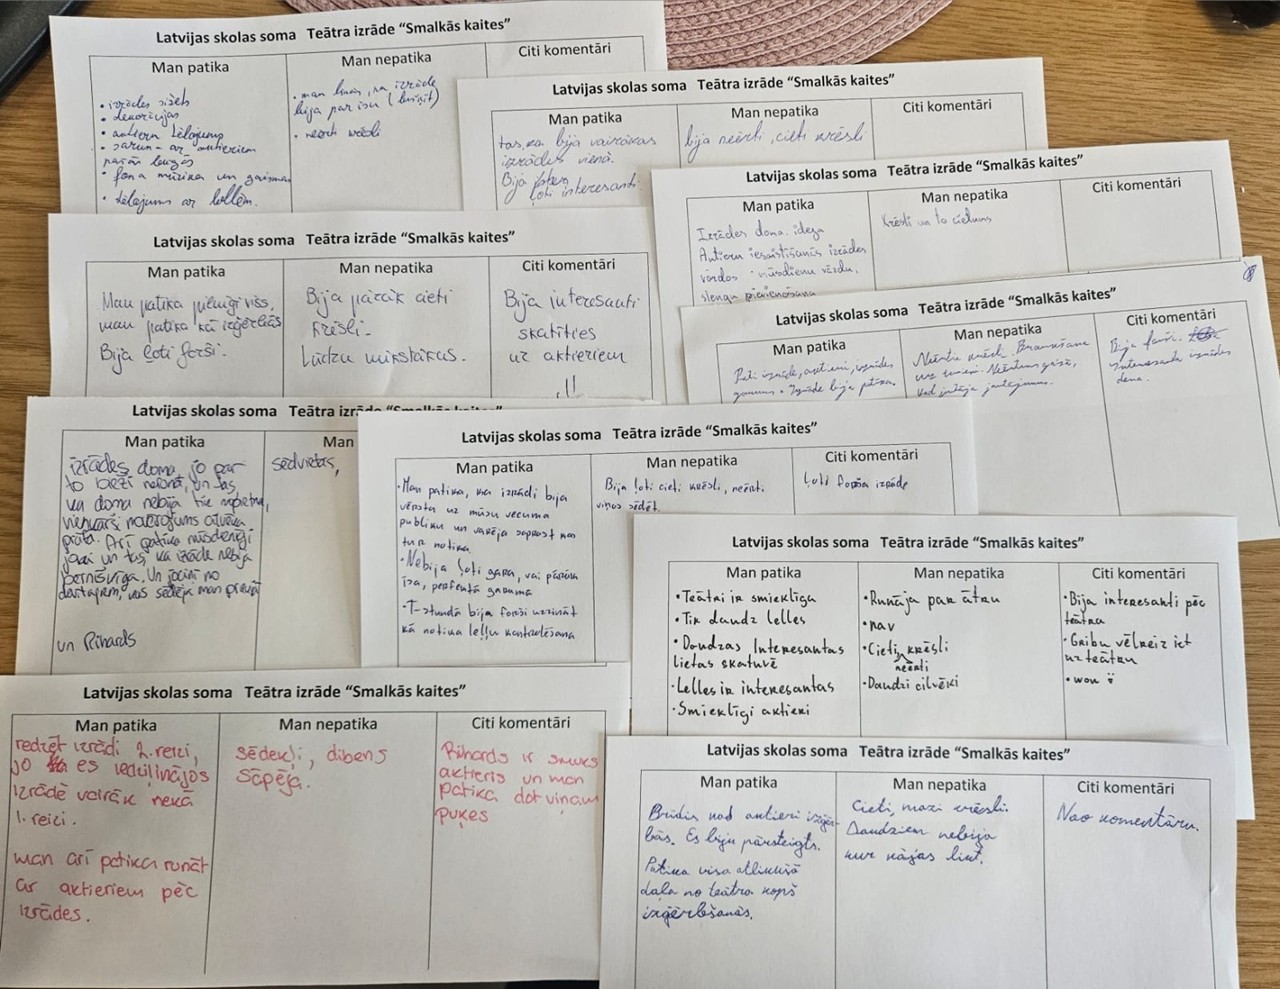 Latvijas skolas soma Teātra izrāde “Smalkās kaites”
Man patika
Man nepatika
Citi komentāri
• izrādes sižets
• dekorācijas
• aktieru tēlojums
• saruna ar aktieriem
pašās beigās
• fona mūzika un gaismas
• tēlojums ar lellēm.
• man likās, ka izrāde
bija par īsu
• neērti krēsli
Latvijas skolas soma Teātra izrāde “Smalkās kaites”
Man patika
Man nepatika
Citi komentāri
tas, ka bija vairākas
izrādes vienā.
Bija
ļoti interesanti.
bija neērti, cieti krēsli
Latvijas skolas soma Teātra izrāde “Smalkās kaites”
Man patika
Man nepatika
Citi komentāri
Izrādes doma. ideja
Aktieru iesaistīšanās izrādes
vārdos mūsdienu vārdu,
slengu pievienošana
Krēsli un to cietums
Latvijas skolas soma Teātra izrāde “Smalkās kaites”
Man patika
Man nepatika
Citi komentāri
Man patika pilnīgi viss,
man patika kā izģērbās
Bija ļoti forši.
Bija pārāk cieti
krēsli.
Lūdzu mīkstākus.
Bija interesanti
skatīties
uz aktieriem
!!
Latvijas skolas soma Teātra izrāde “Smalkās kaites”
Man patika
Man nepatika
Citi komentāri
Pati izrāde, aktieri, izrādes
garums. Izrāde bija
Neērtie krēsli. Braukšana
uz turieni. Neērtums
kad jautāja jautājumus.
Bija forši.
Interesanta izrādes
doma.
Latvijas skolas soma Teātra izrāde “Smalkās kaites”
Man patika
Man
izrādes doma, jo par
to bieži nerunā, un tas,
ka doma nebija tik nopietna,
vienkārši
prātā. Arī patika mūsdienīgi
joki un tas, ka izrāde nebija
bērnišķīga. Un jociņi no
dažiem, kas sēdēja man priekšā
un Rihards
sēdvietas,
Latvijas skolas soma Teātra izrāde “Smalkās kaites”
Man patika
Man nepatika
Citi komentāri
• Man patika, ka izrādi bija
vērsta uz mūsu vecuma
publiku un varēja saprast kas
tur notika
• Nebija ļoti gara, vai pārāk
īsa, perfektā garumā
• T-stundā bija forši uzzināt
kā notika leļļu kontrolēšana
Bija ļoti cieti krēsli, neērti
viņos sēdēt.
Ļoti forša izrāde
Latvijas skolas soma Teātra izrāde “Smalkās kaites”
Man patika
Man nepatika
Citi komentāri
• Teātri ir smieklīga
• Tik daudz lelles
• Daudzas Interesantas
lietas skatuvē
• Lelles ir interesantas
• Smieklīgi aktieri
• Runāja par ātru
• nav
• Cieti, krēsli
neērti
• Daudzi cilvēki
• Bija interesanti pēc
teātra
• Gribu vēlreiz iet
uz teātru
• wow
Latvijas skolas soma Teātra izrāde “Smalkās kaites”
Man patika
Man nepatika
Citi komentāri
redzēt izrādi 2. reizi,
jo es iedziļinājos
izrādē vairāk nekā
1. reizi.
man arī patika runāt
ar aktieriem pēc
izrādes.
sēdekļi, dibens
sāpēja.
Rihards ir smuks
aktieris un man
patika dot viņam
puķes
Latvijas skolas soma Teātra izrāde “Smalkās kaites”
Man patika
Man nepatika
Citi komentāri
Brīdis kad aktieri izģēr-
bās. Es biju pārsteigts.
Patika visa atlikušā
daļa no teātra kopš
izģērbšanās.
Cieti, mazi krēsli.
Daudziem nebija
kur kājas likt.
Nav komentāru.